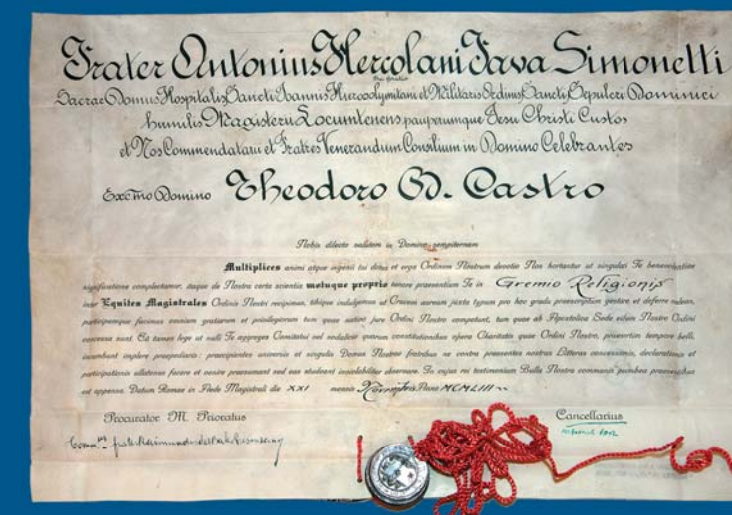 Frater Antonius Hercolani Fava Simonetti
Dei gratia
Sacrae Domus Hospitalis Sancti Joannis Hierosolymitani et Militaris Ordinis Sancti Sepulcri Dominici
humilis Magisterii Locumtenens pauperumque Jesu Christi Custos
et Nos Commendatarii et Fratres Venerandum Consilium in Domino Celebrantes
Excmo Domino Theodoro D. Castro
Nobis dilecto salutem in Domino sempiternam
Multiplices animi atque ingenii tui dotes et erga Ordinem Nostrum devotio Nos hortantur ut singulari Te benevolentiae
significatione complectamur, itaque de Nostra certa scientia motuque proprio tenore praesentium Te in Gremio Religionis
inter Equites Magistrales Ordinis Nostri recipimus, tibique indulgemus ut Crucem auream juxta typum pro hoc gradu praescriptum gestare et deferre valeas,
participemque facimus omnium gratiarum et privilegiorum tum quae nostro jure Ordini Nostro competunt, tum quae ab Apostolica Sede eidem Nostro Ordini
concessa sunt. Ea tamen lege ut nulli Te aggreges Comitatui vel sodalicio quorum constitutionibus opera Charitatis quae Ordini Nostro, praesertim tempore belli,
incumbunt implere praepediaris: praecipientes universis et singulis Domus Nostrae fratribus ne contra praesentes nostras Litteras concessionis, declarationis et
participationis aliquatenus facere et venire praesumant sed eas studeant inviolabiliter observare. In cujus rei testimonium Bulla Nostra communis plumbea praesentibus
est appensa. Datum Romae in Sede Magistrali die XXI mensis Novembris Anno MCMLIII
Procurator M. Prioratus
Cancellarius